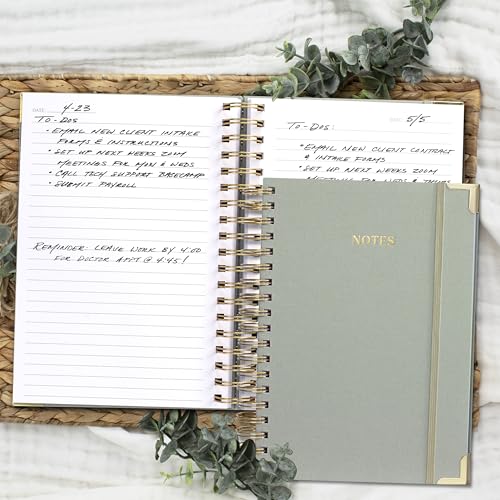 DATE: 4-23
TO-DOS
• EMAIL NEW CLIENT INTAKE
FORMS & INSTRUCTIONS
• SET UP NEXT WEEKS ZOOM
MEETINGS FOR MON & WEDS
• CALL TECH SUPPORT BASECAMP
• SUBMIT PAYROLL
REMINDER: LEAVE WORK BY 4:00
FOR DOCTOR APPT @ 4:45!
DATE: 5/5
TO-DOS:
• EMAIL NEW CLIENT CONTRACT
& INTAKE FORMS
• SET UP NEXT WEEKS ZOOM
MEETING FOR WEDS &
NOTES